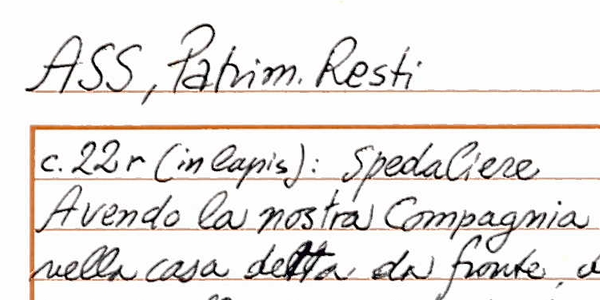 ASS, Patrim. Resti
c. 22 r (in lapis): Spedaliere
Avendo la nostra Compagnia
nella casa detta da fronte,